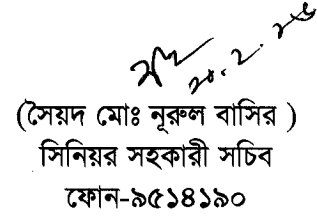 ২০.২.২৬
(সৈয়দ মোঃ নূরুল বাসির )
সিনিয়র সহকারী সচিব
ফোন-৯৫১৪১৯০